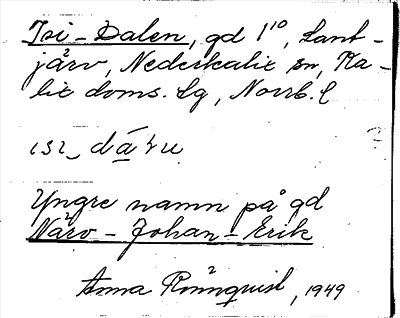 Isi-Dalen, gd 1¹⁰, Lant-
järv, Nederkalix sn, Ka-
lix doms. Lg, Norrb. l
ɩsɩ_dáɫu
Yngre namn på gd
Närv-Johan-Erik
Anna Rönnquist, 1949